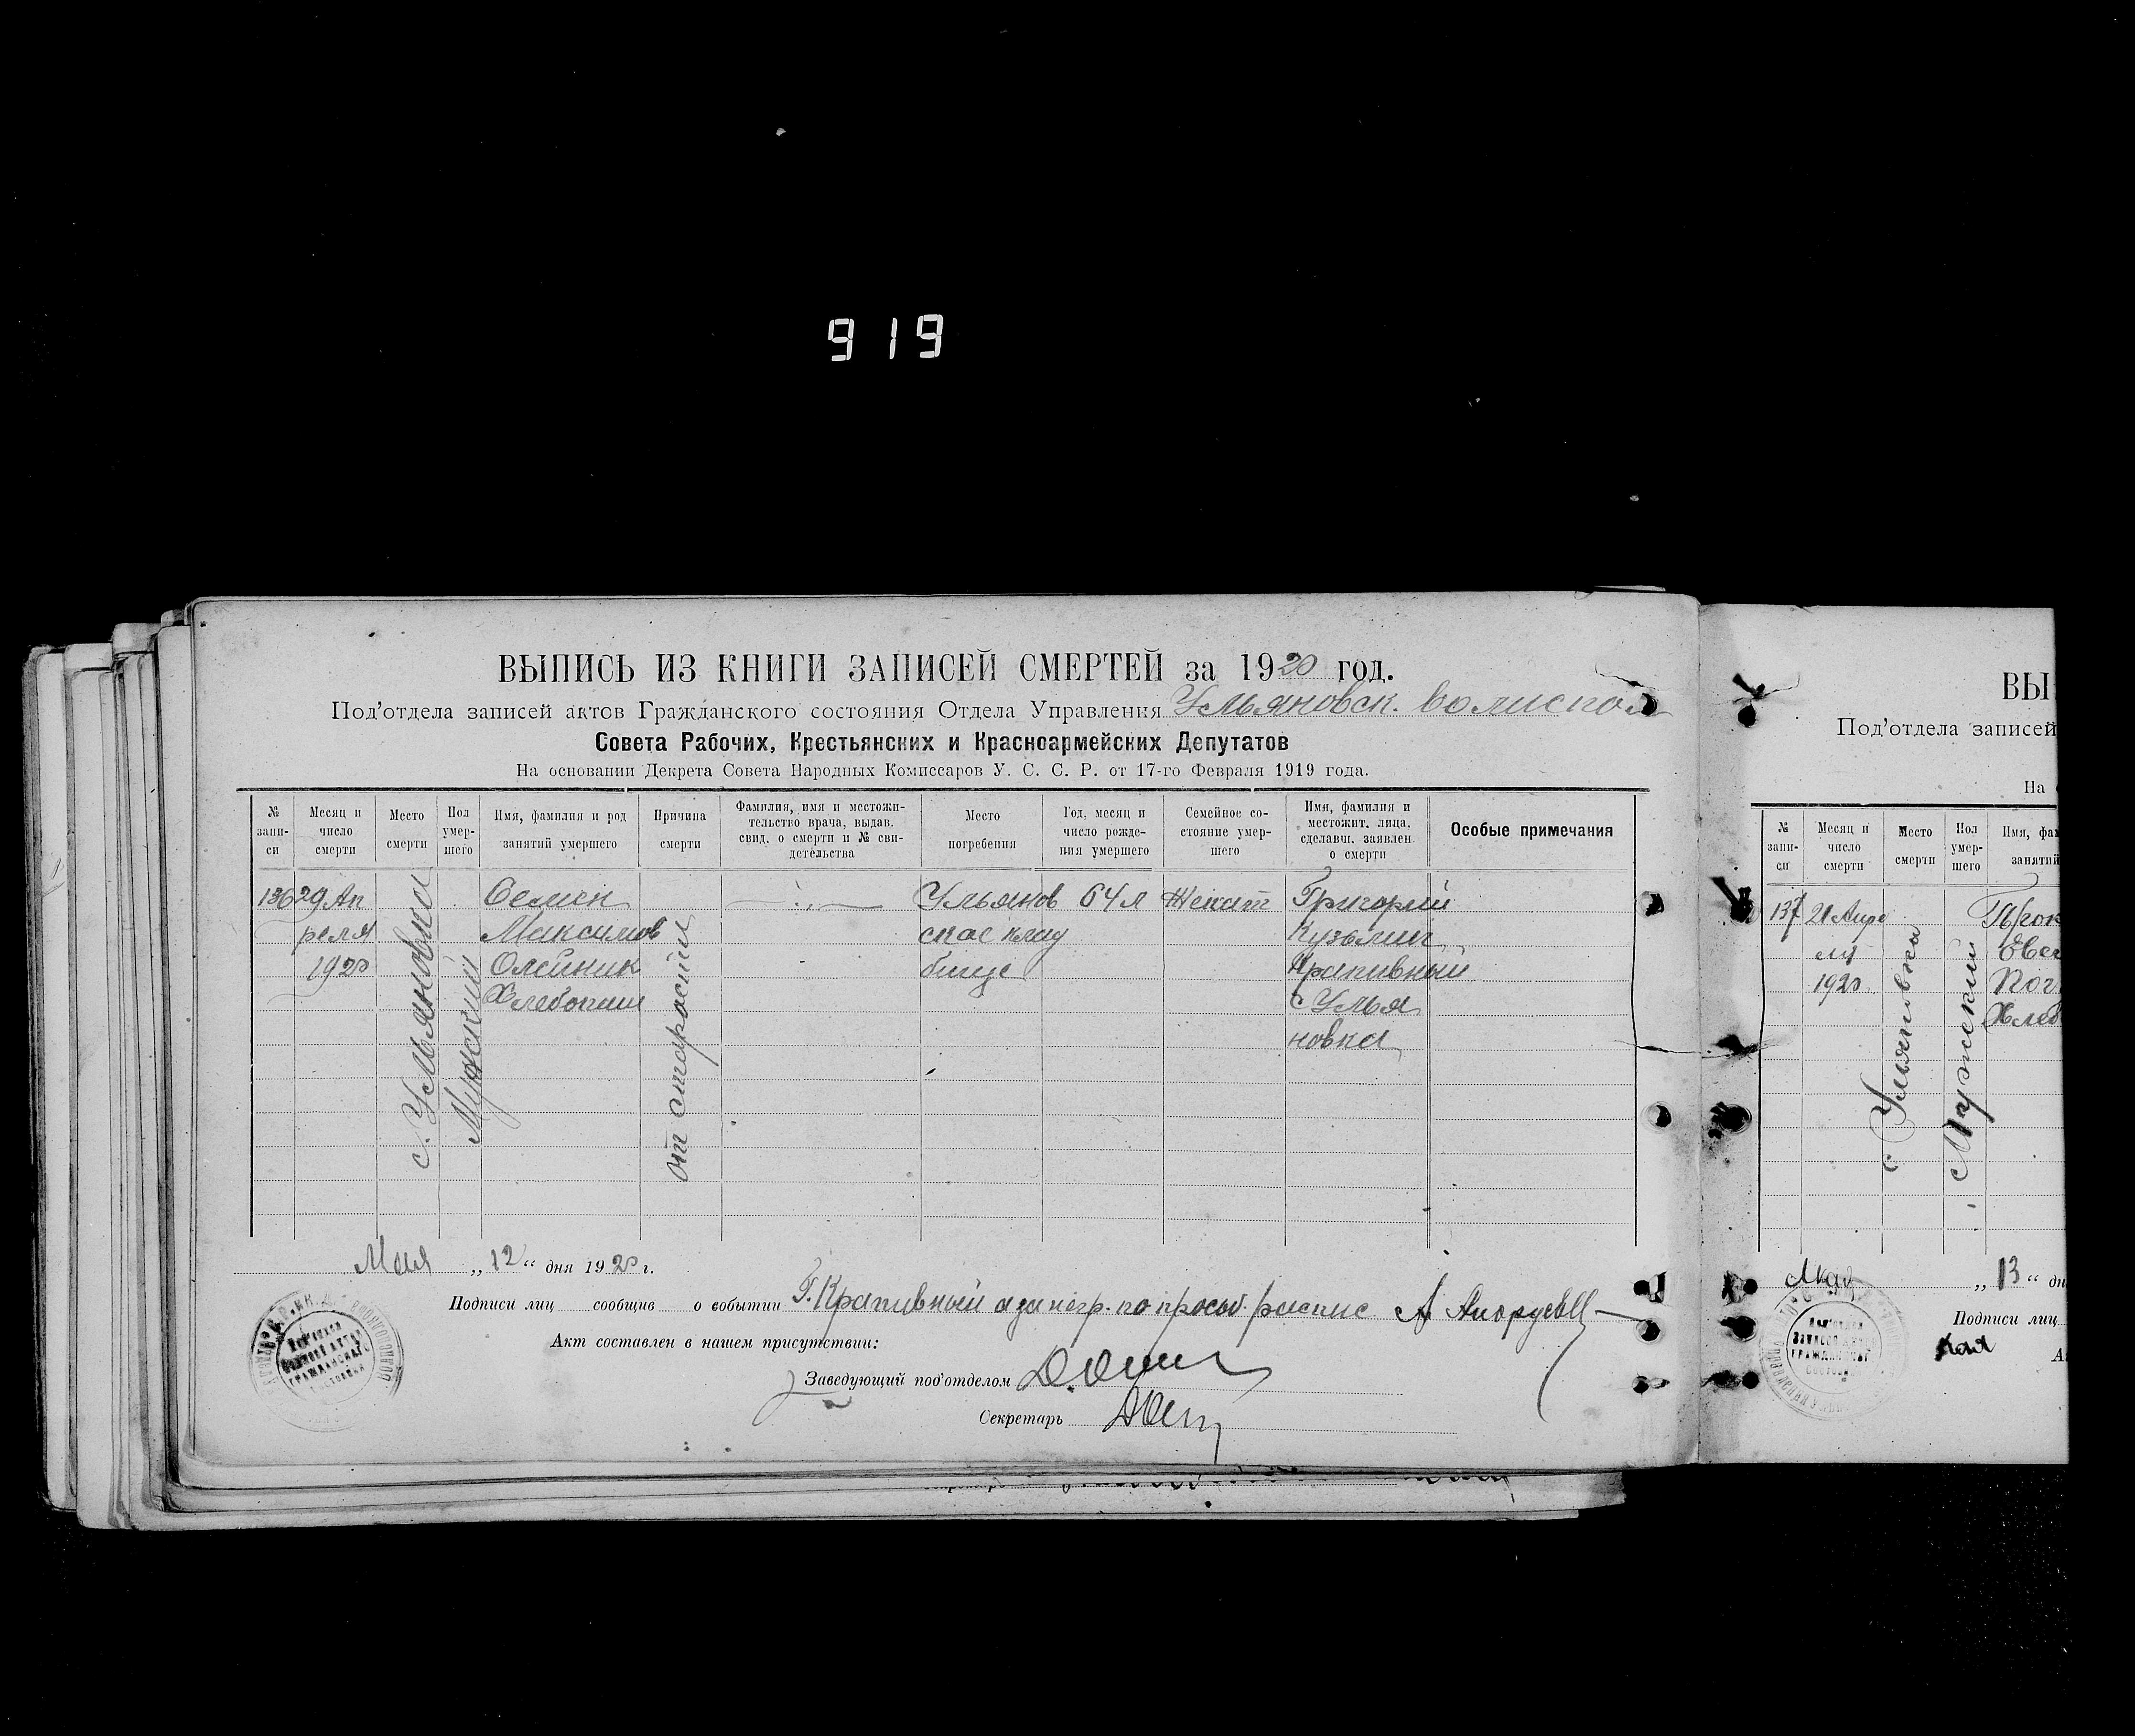 919
ВЫПИСЬ ИЗ КНИГИ ЗАПИСЕЙ СМЕРТЕЙ за 1920 год.
Под'отдела записей актов Гражданского состояния Отдела Управления Ульяновск. волиспол
Совета Рабочих, Крестьянских и Красноармейских Депутатов
На основании Декрета Совета Народных Комиссаров У. С. С. Р. от 17-го Февраля 1919 года.
№ запи-си
Месяц и число смерти
Место смерти
Пол умер-шего
Имя, фамилия и род занятий умершего
Причина смерти
Фамилия, имя и местожи-тельство врача, выдав. свид. о смерти и № сви-детельства
Место погребения
Год, месяц и число рожде-ния умершего
Семейное со-стояние умер-шего
Имя, фамилия и местожит. лица, сделавш. заявлен. о смерти
Особые примечания
136 29 Ап Семен Ульянов 64 л Женат Григорий
реля Максимов спас клад Кузьмич
1920 Олейник бище Крапивный
Хлебопаш с Улья
новка
с. Ульяновка
Мужский
от старости
Мая „12“ дня 1920 г.
Подписи лиц сообщив о событии Г. Крапивный а за негр. по просьб. распис А
Акт составлен в нашем присутствии:
Заведующий под'отделом
Секретарь
ВЫ
Под'отдела записей
На
№ запи-си
Месяц и число смерти
Место смерти
Пол умер-шего
Имя, фа
занятий
137 21 Апре Прок
ля Евс
1920
Хлеб
с Ульяновка
Мужский
Мая „13“ дн
Подписи лиц
А